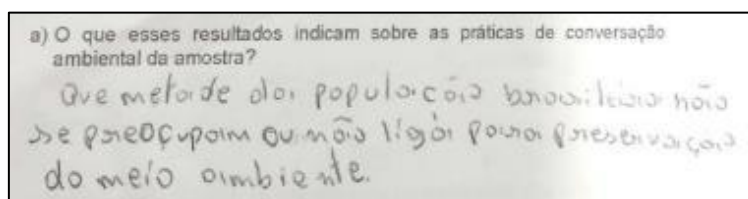 a) O que esses resultados indicam sobre as práticas de conversação
ambiental da amostra?
Que metade da população brasileira não
se preocupam ou não liga para preservação
do meio ambiente.